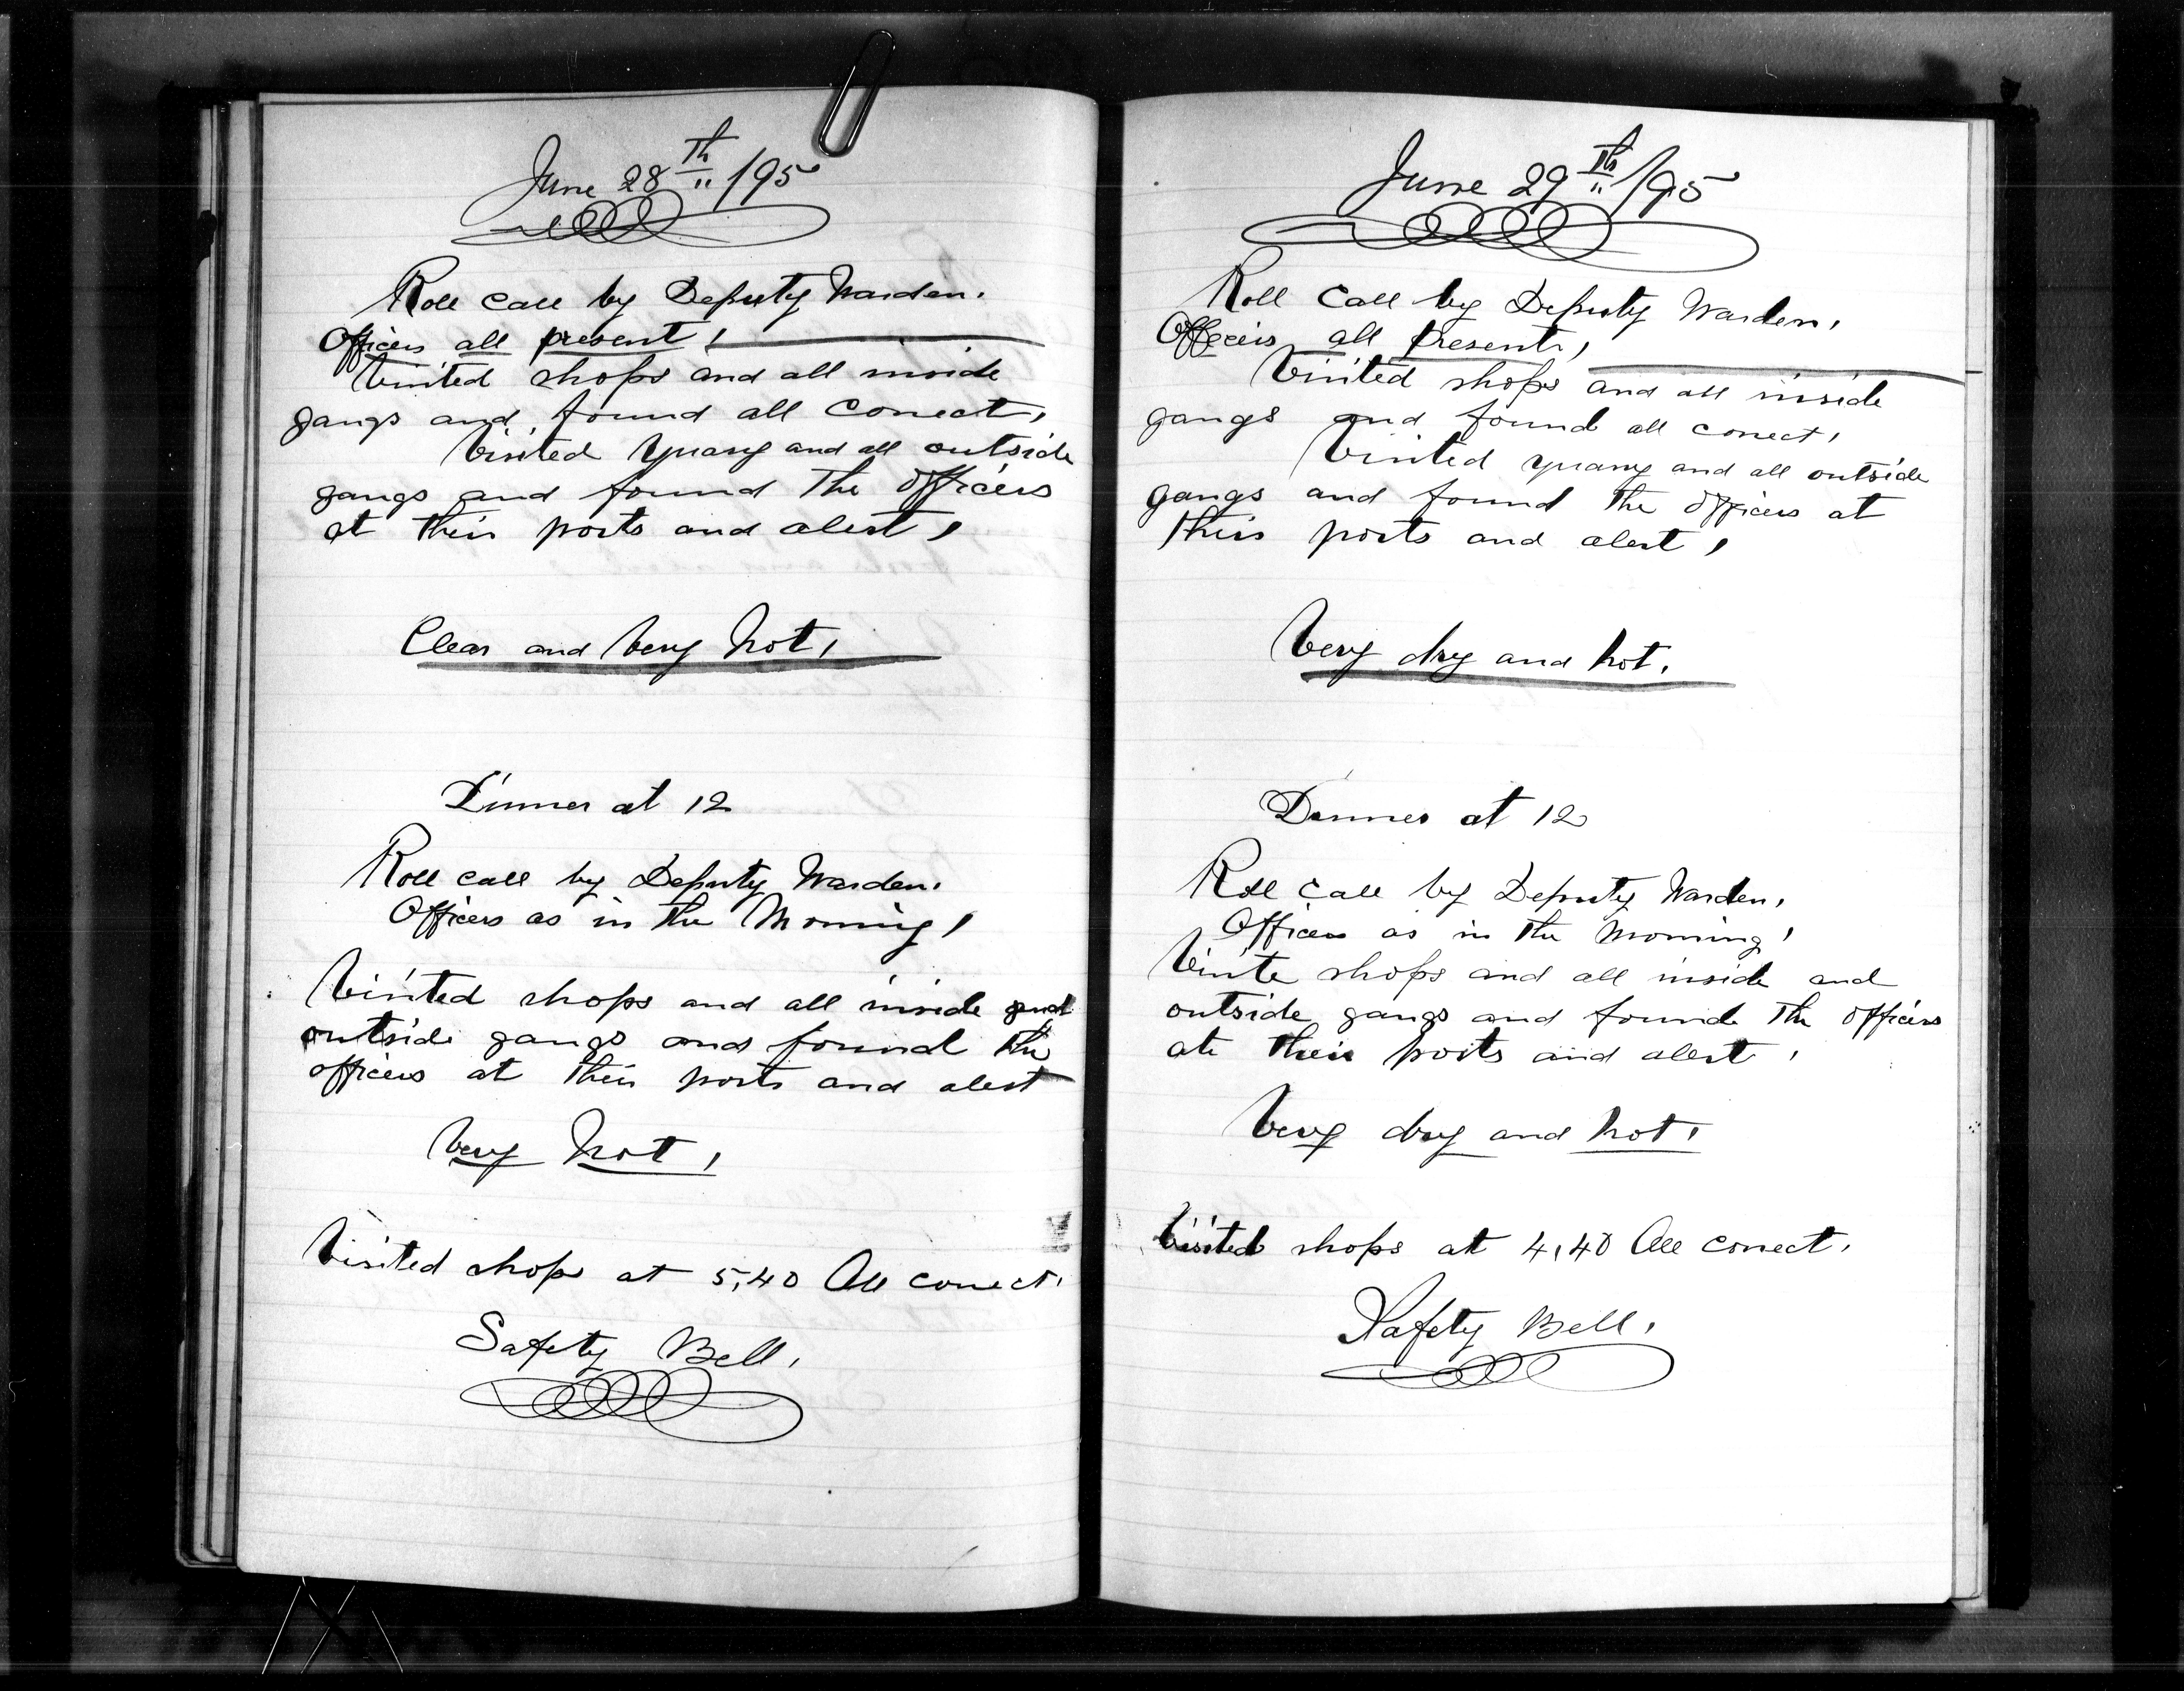 June 28th /95
Roll call by Deputy Warden.
Officers all present,
Visited shops and all inside
gangs and found all correct,
Visited Quarry and all outside
gangs and found The officers
at their posts and alert,
Clear and Very Hot,
Dinner at 12
Roll call by Deputy Warden.
Officers as in the Morning,
Visited shops and all inside and
outside gangs and found the
officers at their posts and alert
Very Hot,
Visited shops at 5,40 All correct.
Safety Bell,
June 29th /95
Roll Call by Deputy Warden,
Officers all Present,
Visited shops and all inside
gangs and found all correct,
Visited quarry and all outside
gangs and found The officers at
Their posts and alert,
Very dry and hot.
Dinner at 12
Roll Call by Deputy Warden,
Officers as in The Morning,
Visite shops and all inside and
outside gangs and found The officers
at their posts and alert,
Very dry and hot,
Visited shops at 4,40 All correct.
Safety Bell,